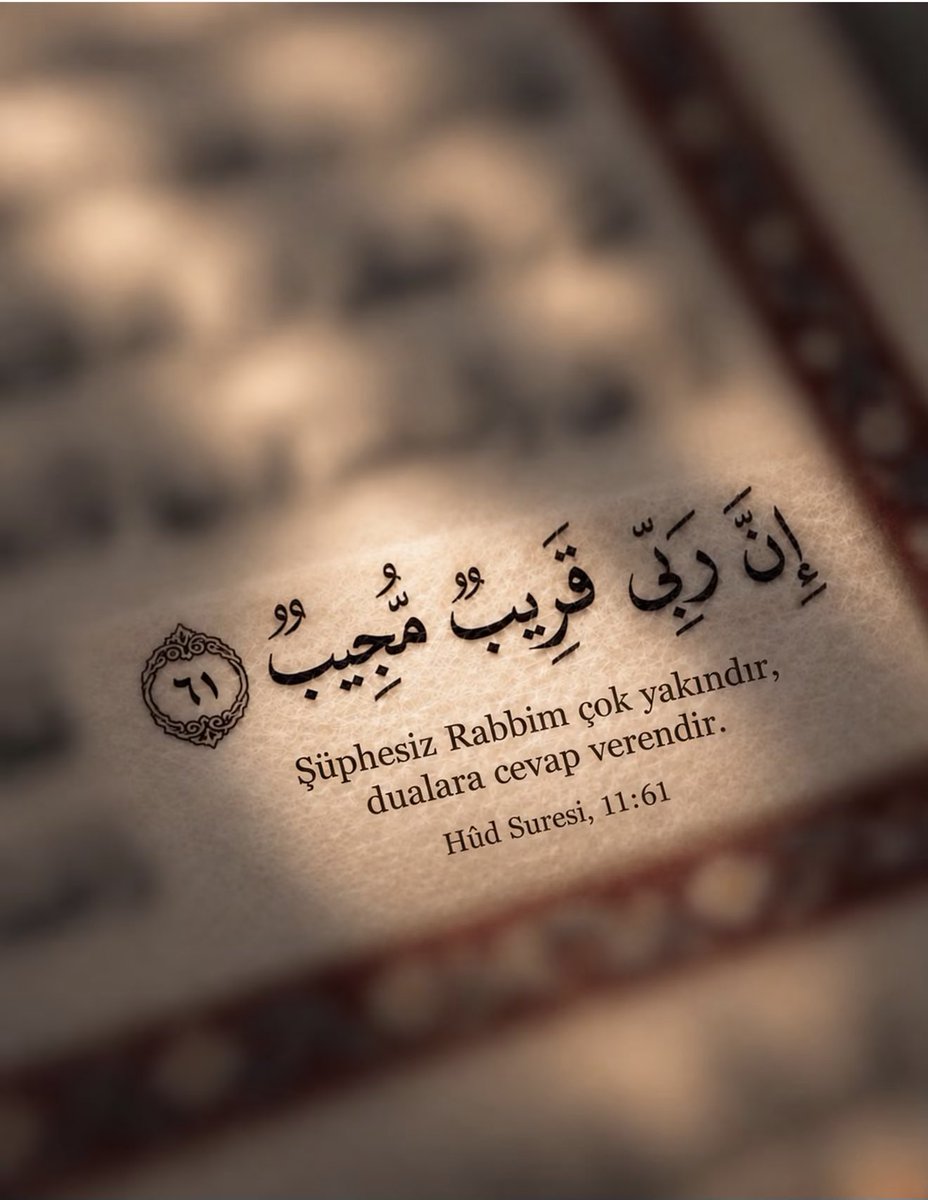 إِنَّ رَبِّي قَرِيبٌ مُّجِيبٌ ٦١
Şüphesiz Rabbim çok yakındır,
dualara cevap verendir.
Hûd Suresi, 11:61